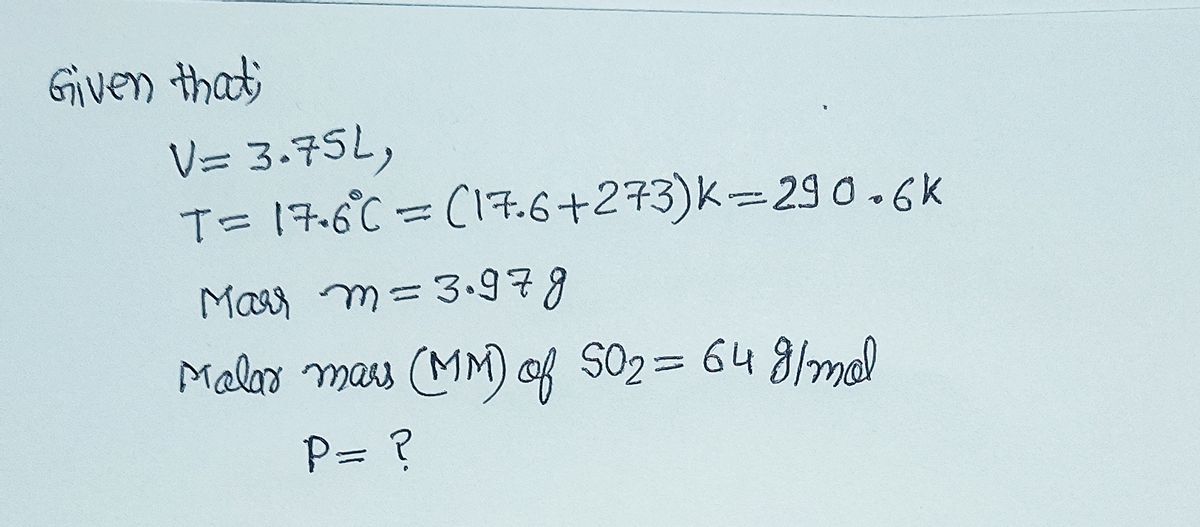 Given that;
V= 3.75L,
T= 17.6°C = (17.6+273)K=290.6K
Mass m=3.97g
Molar mass (MM) of SO2= 64 g/mol
P= ?